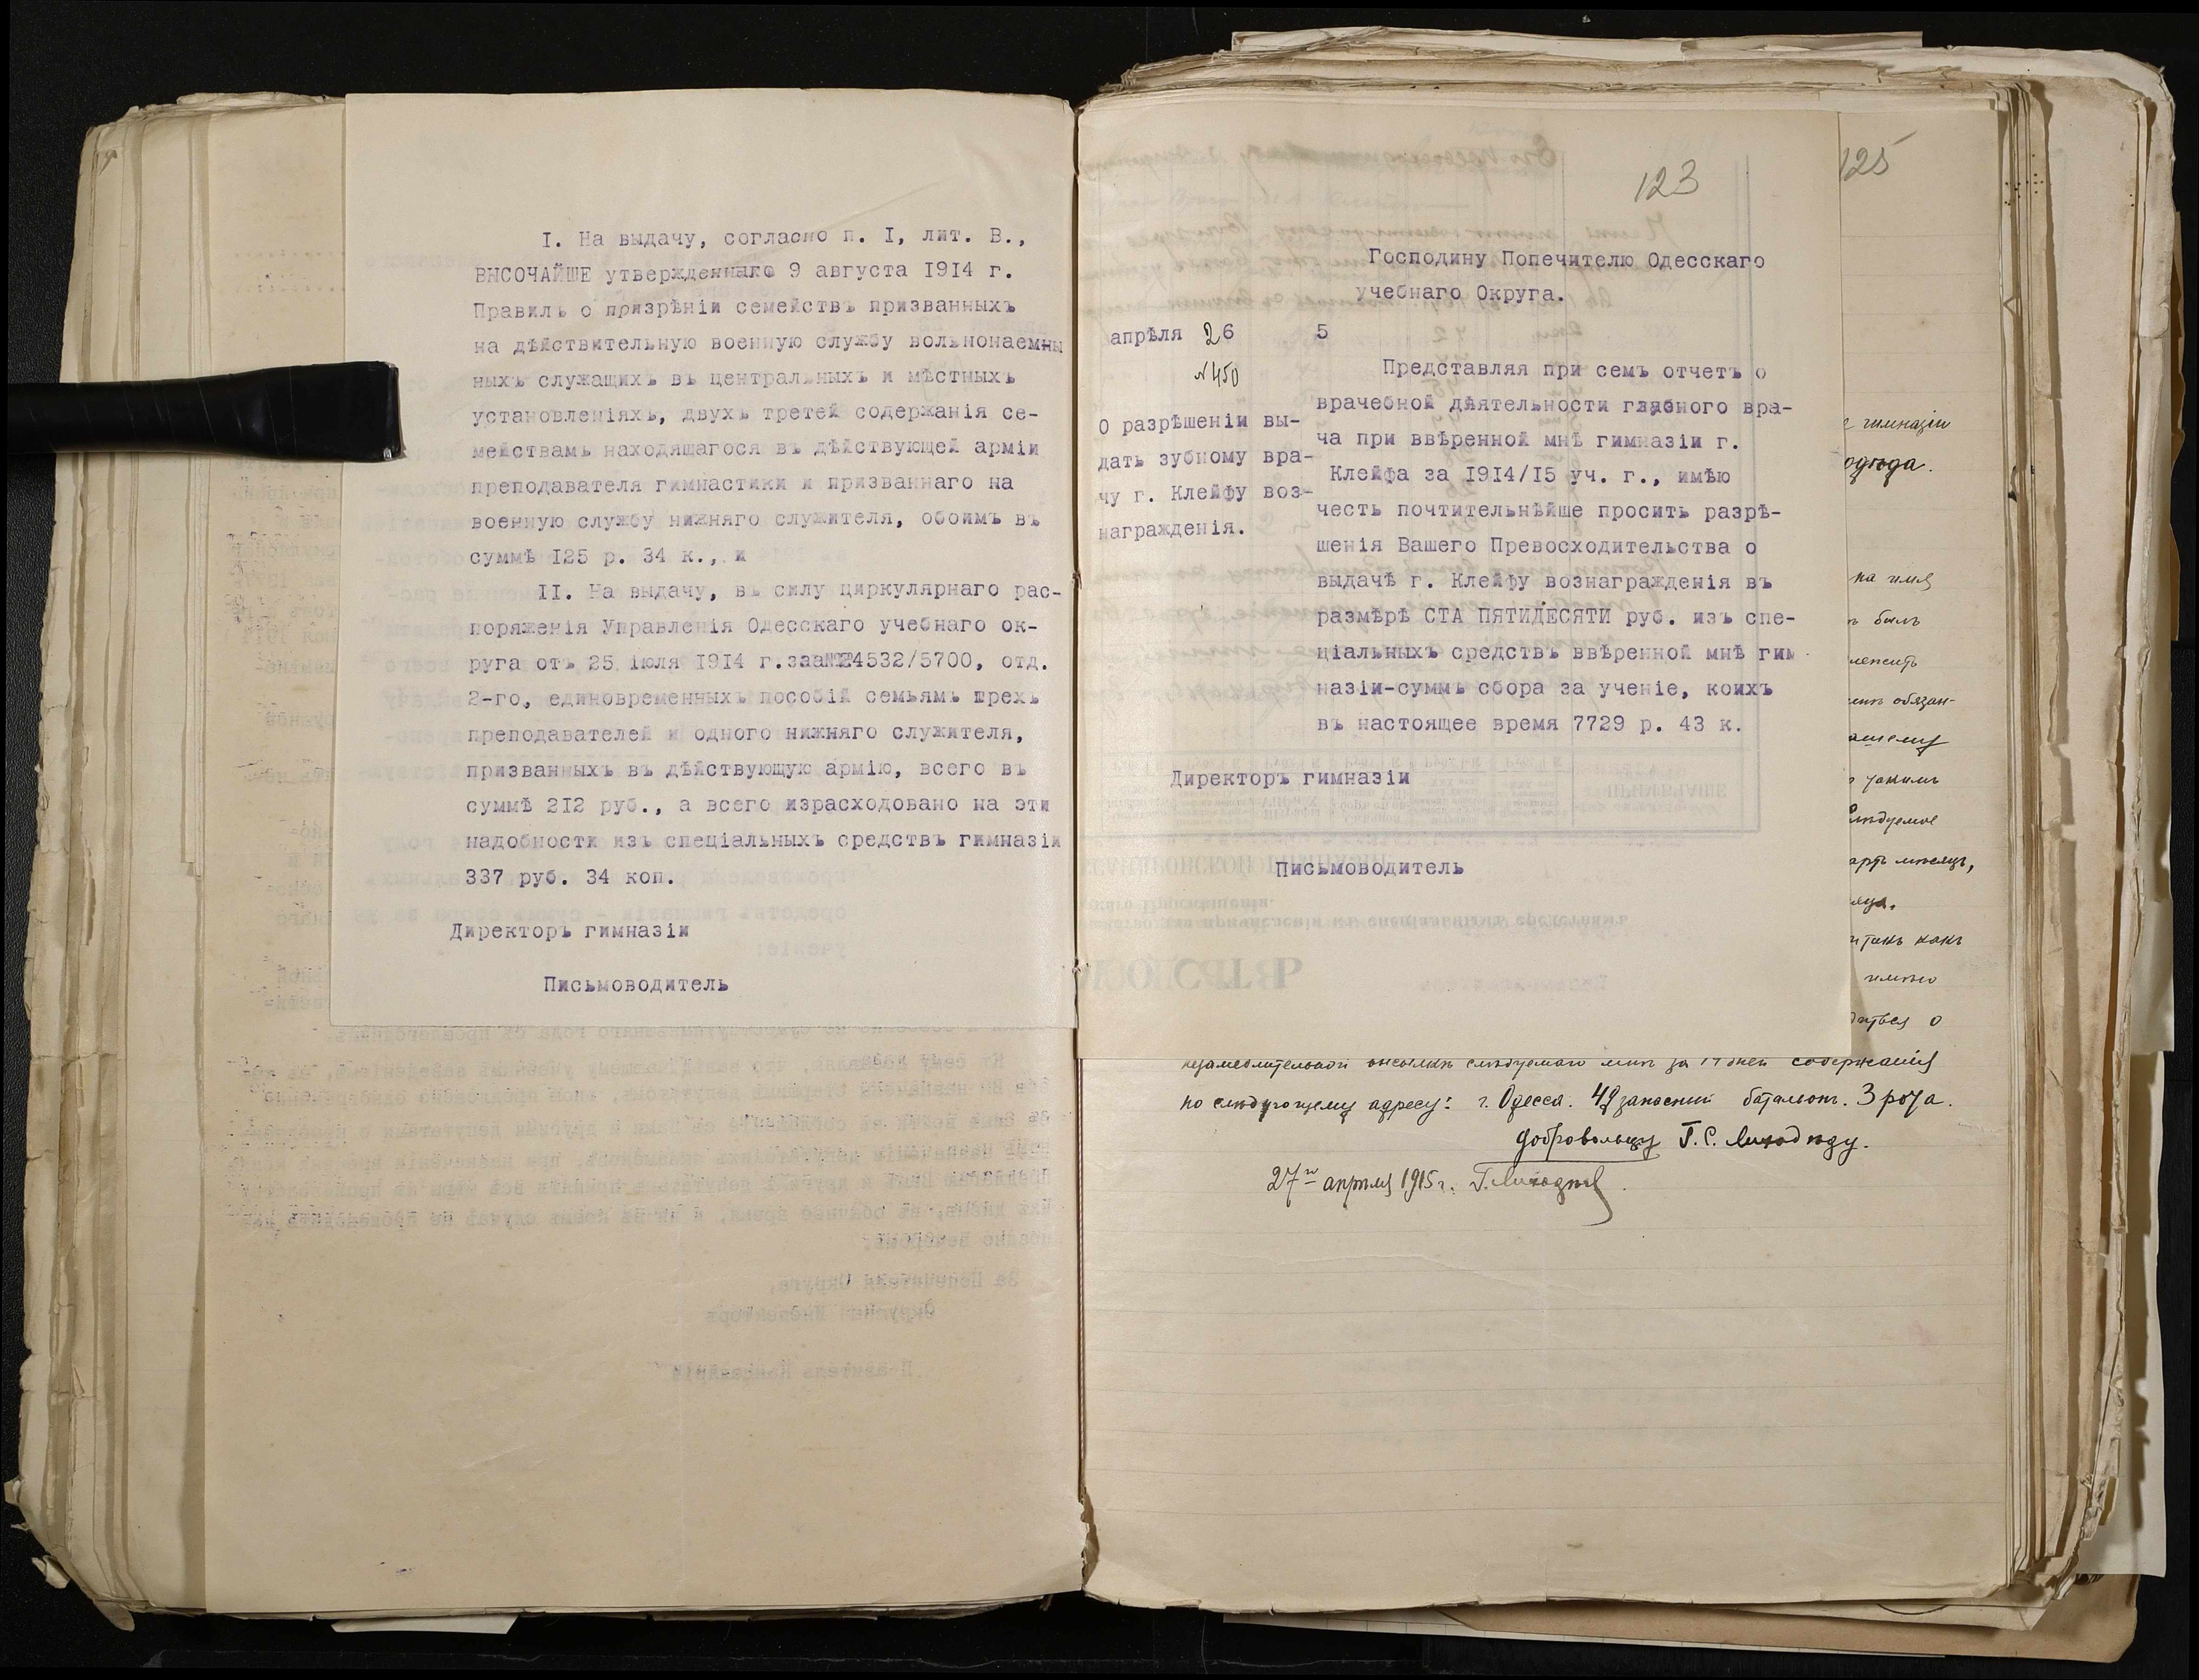 I. На выдачу, согласно п. I, лит. В.,
ВЫСОЧАЙШЕ утвержденнаго 9 августа I9I4 г.
Правилъ о призрѣніи семействъ призванныхъ
на дѣйствительную военную службу вольнонаемны
ныхъ служащихъ въ центральныхъ и мѣстныхъ
установленіяхъ, двухъ третей содержанія се-
мействамъ находящагося въ дѣйствующей арміи
преподавателя гимнастики и призваннаго на
военную службу нижняго служителя, обоимъ въ
суммѣ I25 р. 34 к., и
II. На выдачу, въ силу циркулярнаго рас-
поряженія Управленія Одесскаго учебнаго ок-
руга отъ 25 іюля I9I4 г. за № 24532/5700, отд.
2-го, единовременныхъ пособій семьямъ трехъ
преподавателей и одного нижняго служителя,
призванныхъ въ дѣйствующую армію, всего въ
суммѣ 2I2 руб., а всего израсходовано на эти
надобности изъ спеціальныхъ средствъ гимназіи
337 руб. 34 коп.
Директоръ гимназіи
Письмоводитель
123
Господину Попечителю Одесскаго
учебнаго Округа.
апрѣля 26 5
№ 450
О разрѣшеніи вы-
дать зубному вра-
чу г. Клейфу воз-
награжденія.
Представляя при семъ отчетъ о
врачебной дѣятельности зубного вра-
ча при ввѣренной мнѣ гимназіи г.
Клейфа за I9I4/I5 уч. г., имѣю
честь почтительнѣйше просить разрѣ-
шенія Вашего Превосходительства о
выдачѣ г. Клейфу вознагражденія въ
размѣрѣ СТА ПЯТИДЕСЯТИ руб. изъ спе-
ціальныхъ средствъ ввѣренной мнѣ гим
назіи-суммъ сбора за ученіе, коихъ
въ настоящее время 7729 р. 43 к.
Директоръ гимназіи
Письмоводитель
125
гимназіи
на имя
былъ
обязан-
такъ какъ
имѣю
незамедлительной высылкѣ слѣдуемаго мнѣ за 14 дней содержанія
по слѣдующему адресу: г. Одесса. 49 запасный батальонъ. 3 рота.
добровольцу Г. С.
27го апрѣля 1915 г.